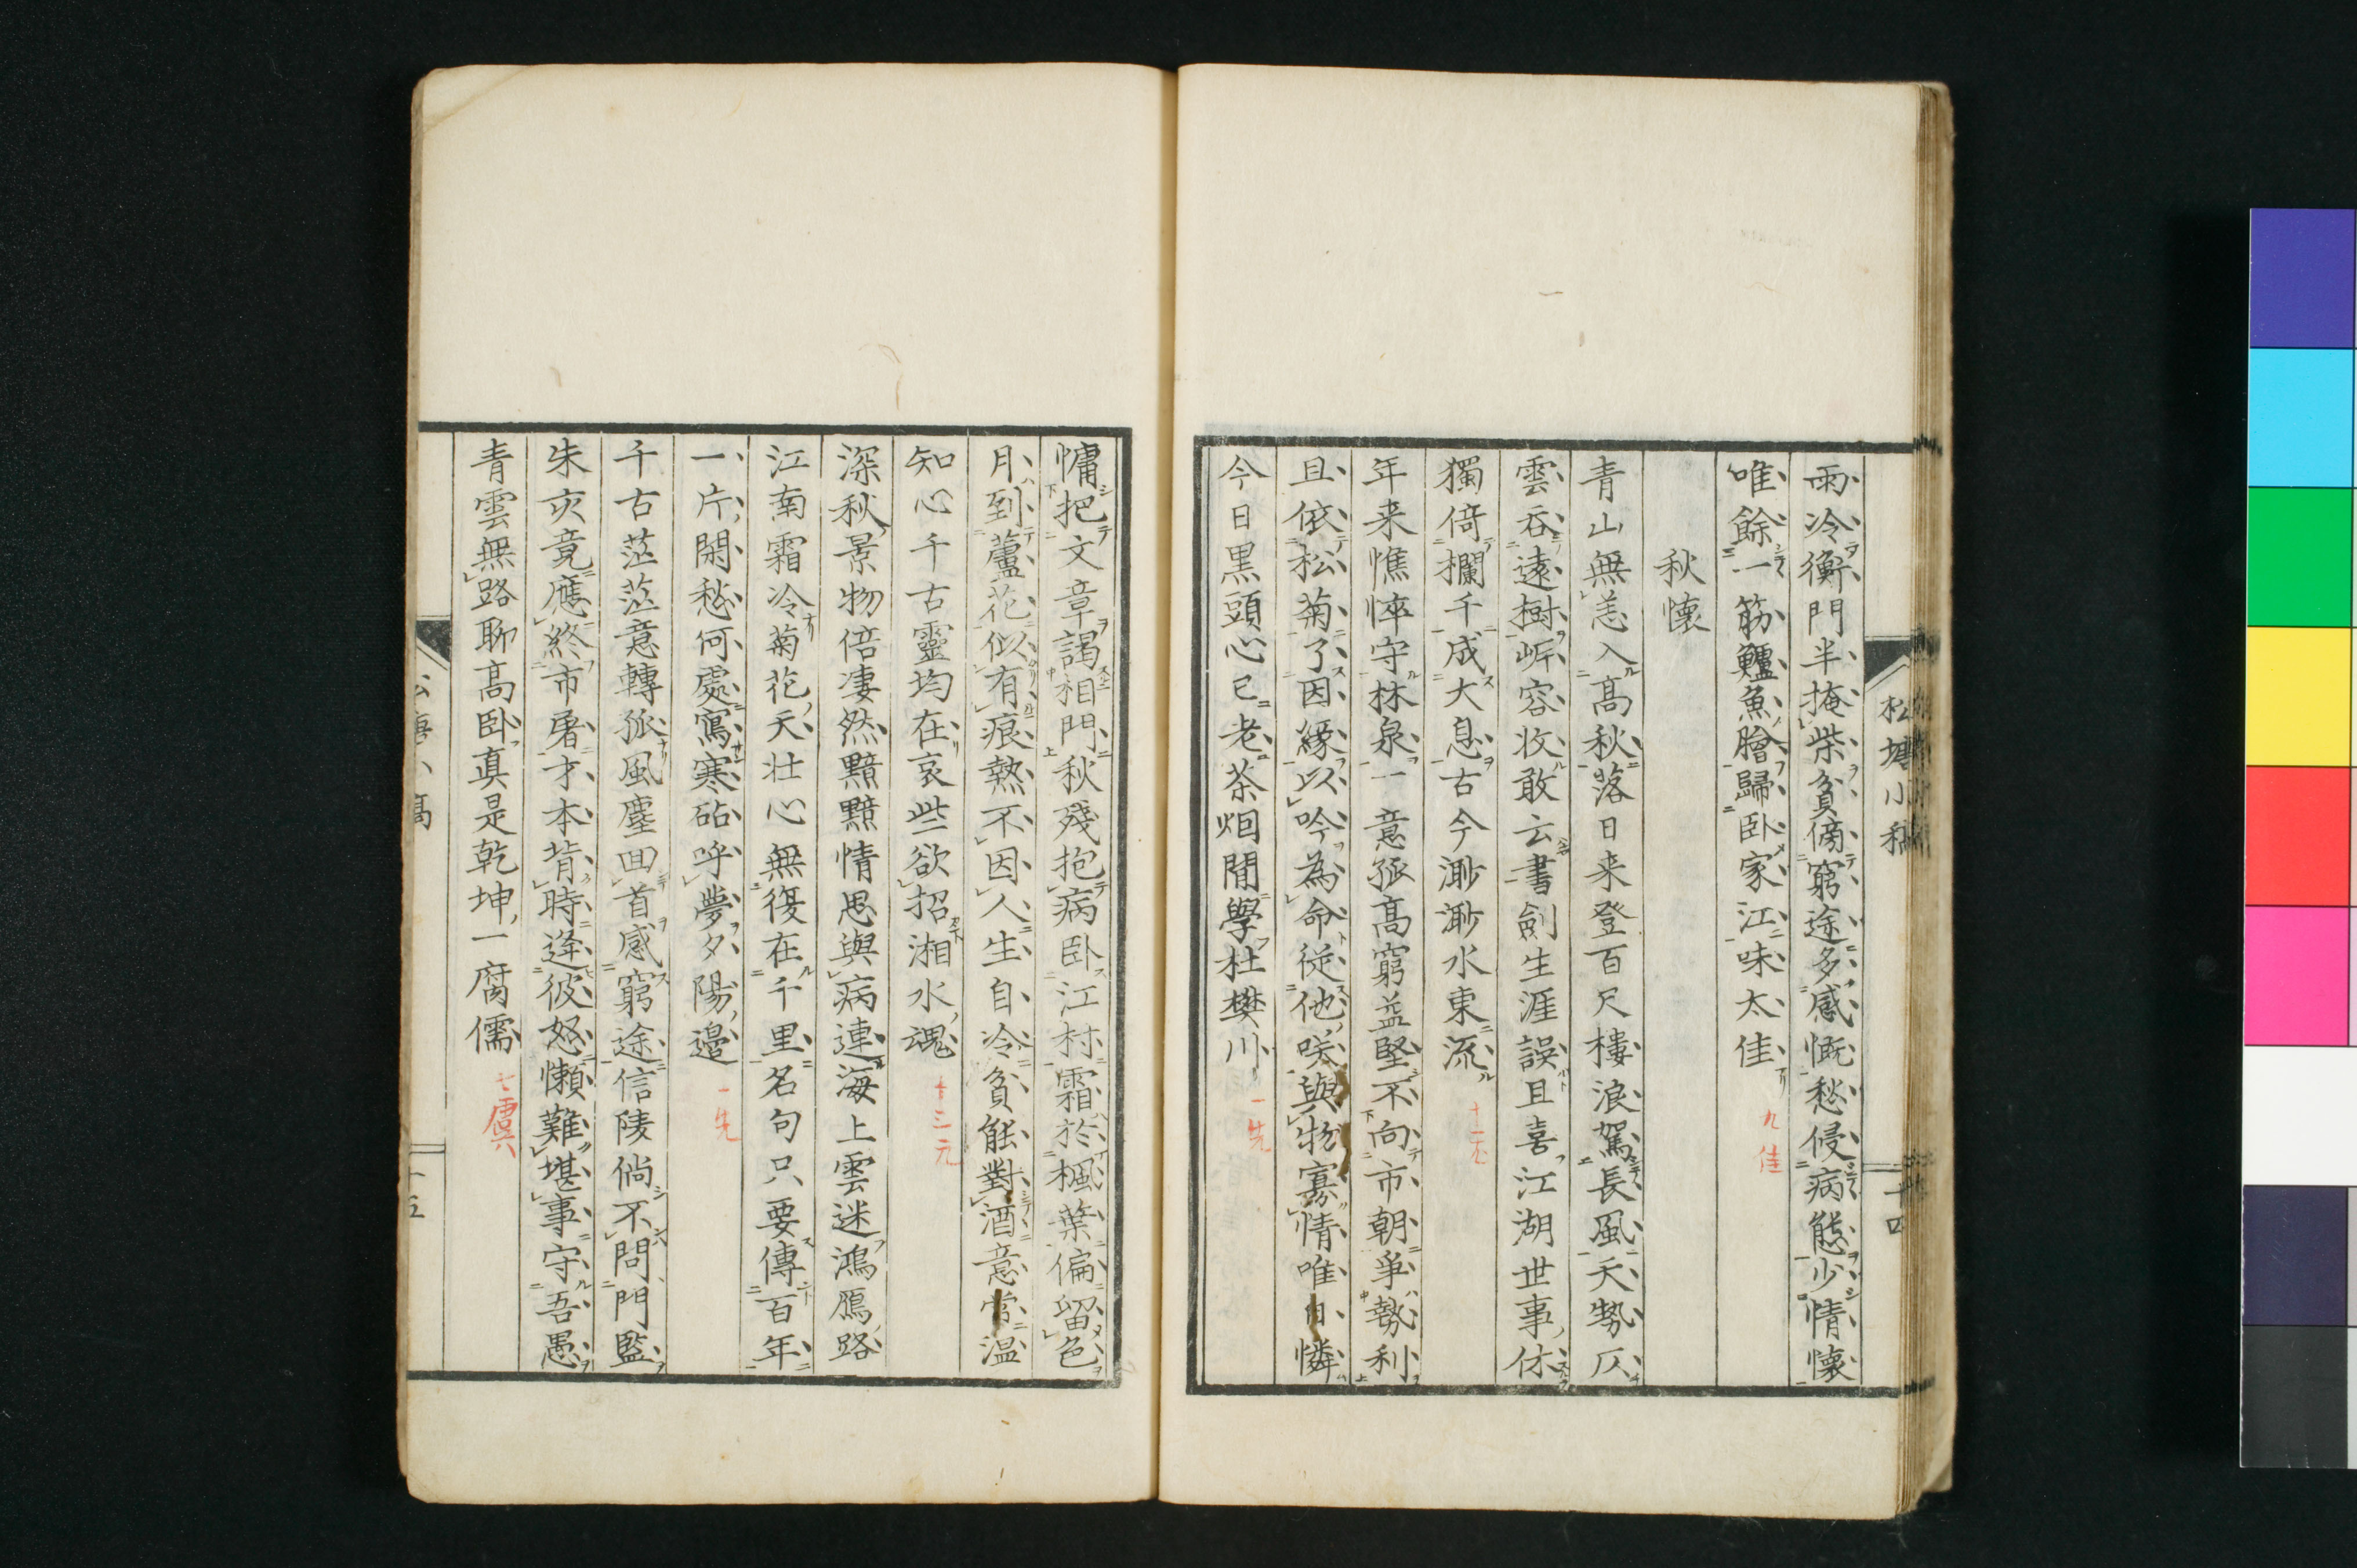 雨冷衡門半掩柴貧傍窮途多感慨愁侵病態少情懷
唯餘一筋鱸魚膾歸臥家江味太佳 九佳
秋懷
青山無恙入高秋落日来登百尺樓浪駕長風天勢仄
雲呑遠樹岍容收敢云書劍生涯誤且喜江湖世事休
獨倚欄干成大息古今渺渺水東流 十一尤
年来憔悴守林泉一意孤高窮益堅不向市朝爭勢利
且依松菊了因緣以吟為命従他咲與物寡情唯自憐
今日黒頭心已老茶烟閒學杜樊川 一先
松塘小稿
十四
慵把文章謁相門秋殘抱病卧江村霜於楓葉偏留色
月到蘆花似有痕熱不因人生自冷貧能對酒意常温
知心千古靈均在哀些欲招湘水魂 十三元
深秋景物倍凄然黯黯情思與病連海上雲迷鴻鴈路
江南霜冷菊花天壮心無復在千里名句只要傳百年
一片閑愁何處寫寒砧呼夢夕陽邊 一先
千古茫茫意轉孤風塵回首感窮途信陵倘不問門監
朱亥竟應終市屠才本背時逢彼怒懶難堪事守吾愚
青雲無路聊高卧真是乾坤一腐儒 七虞
十五